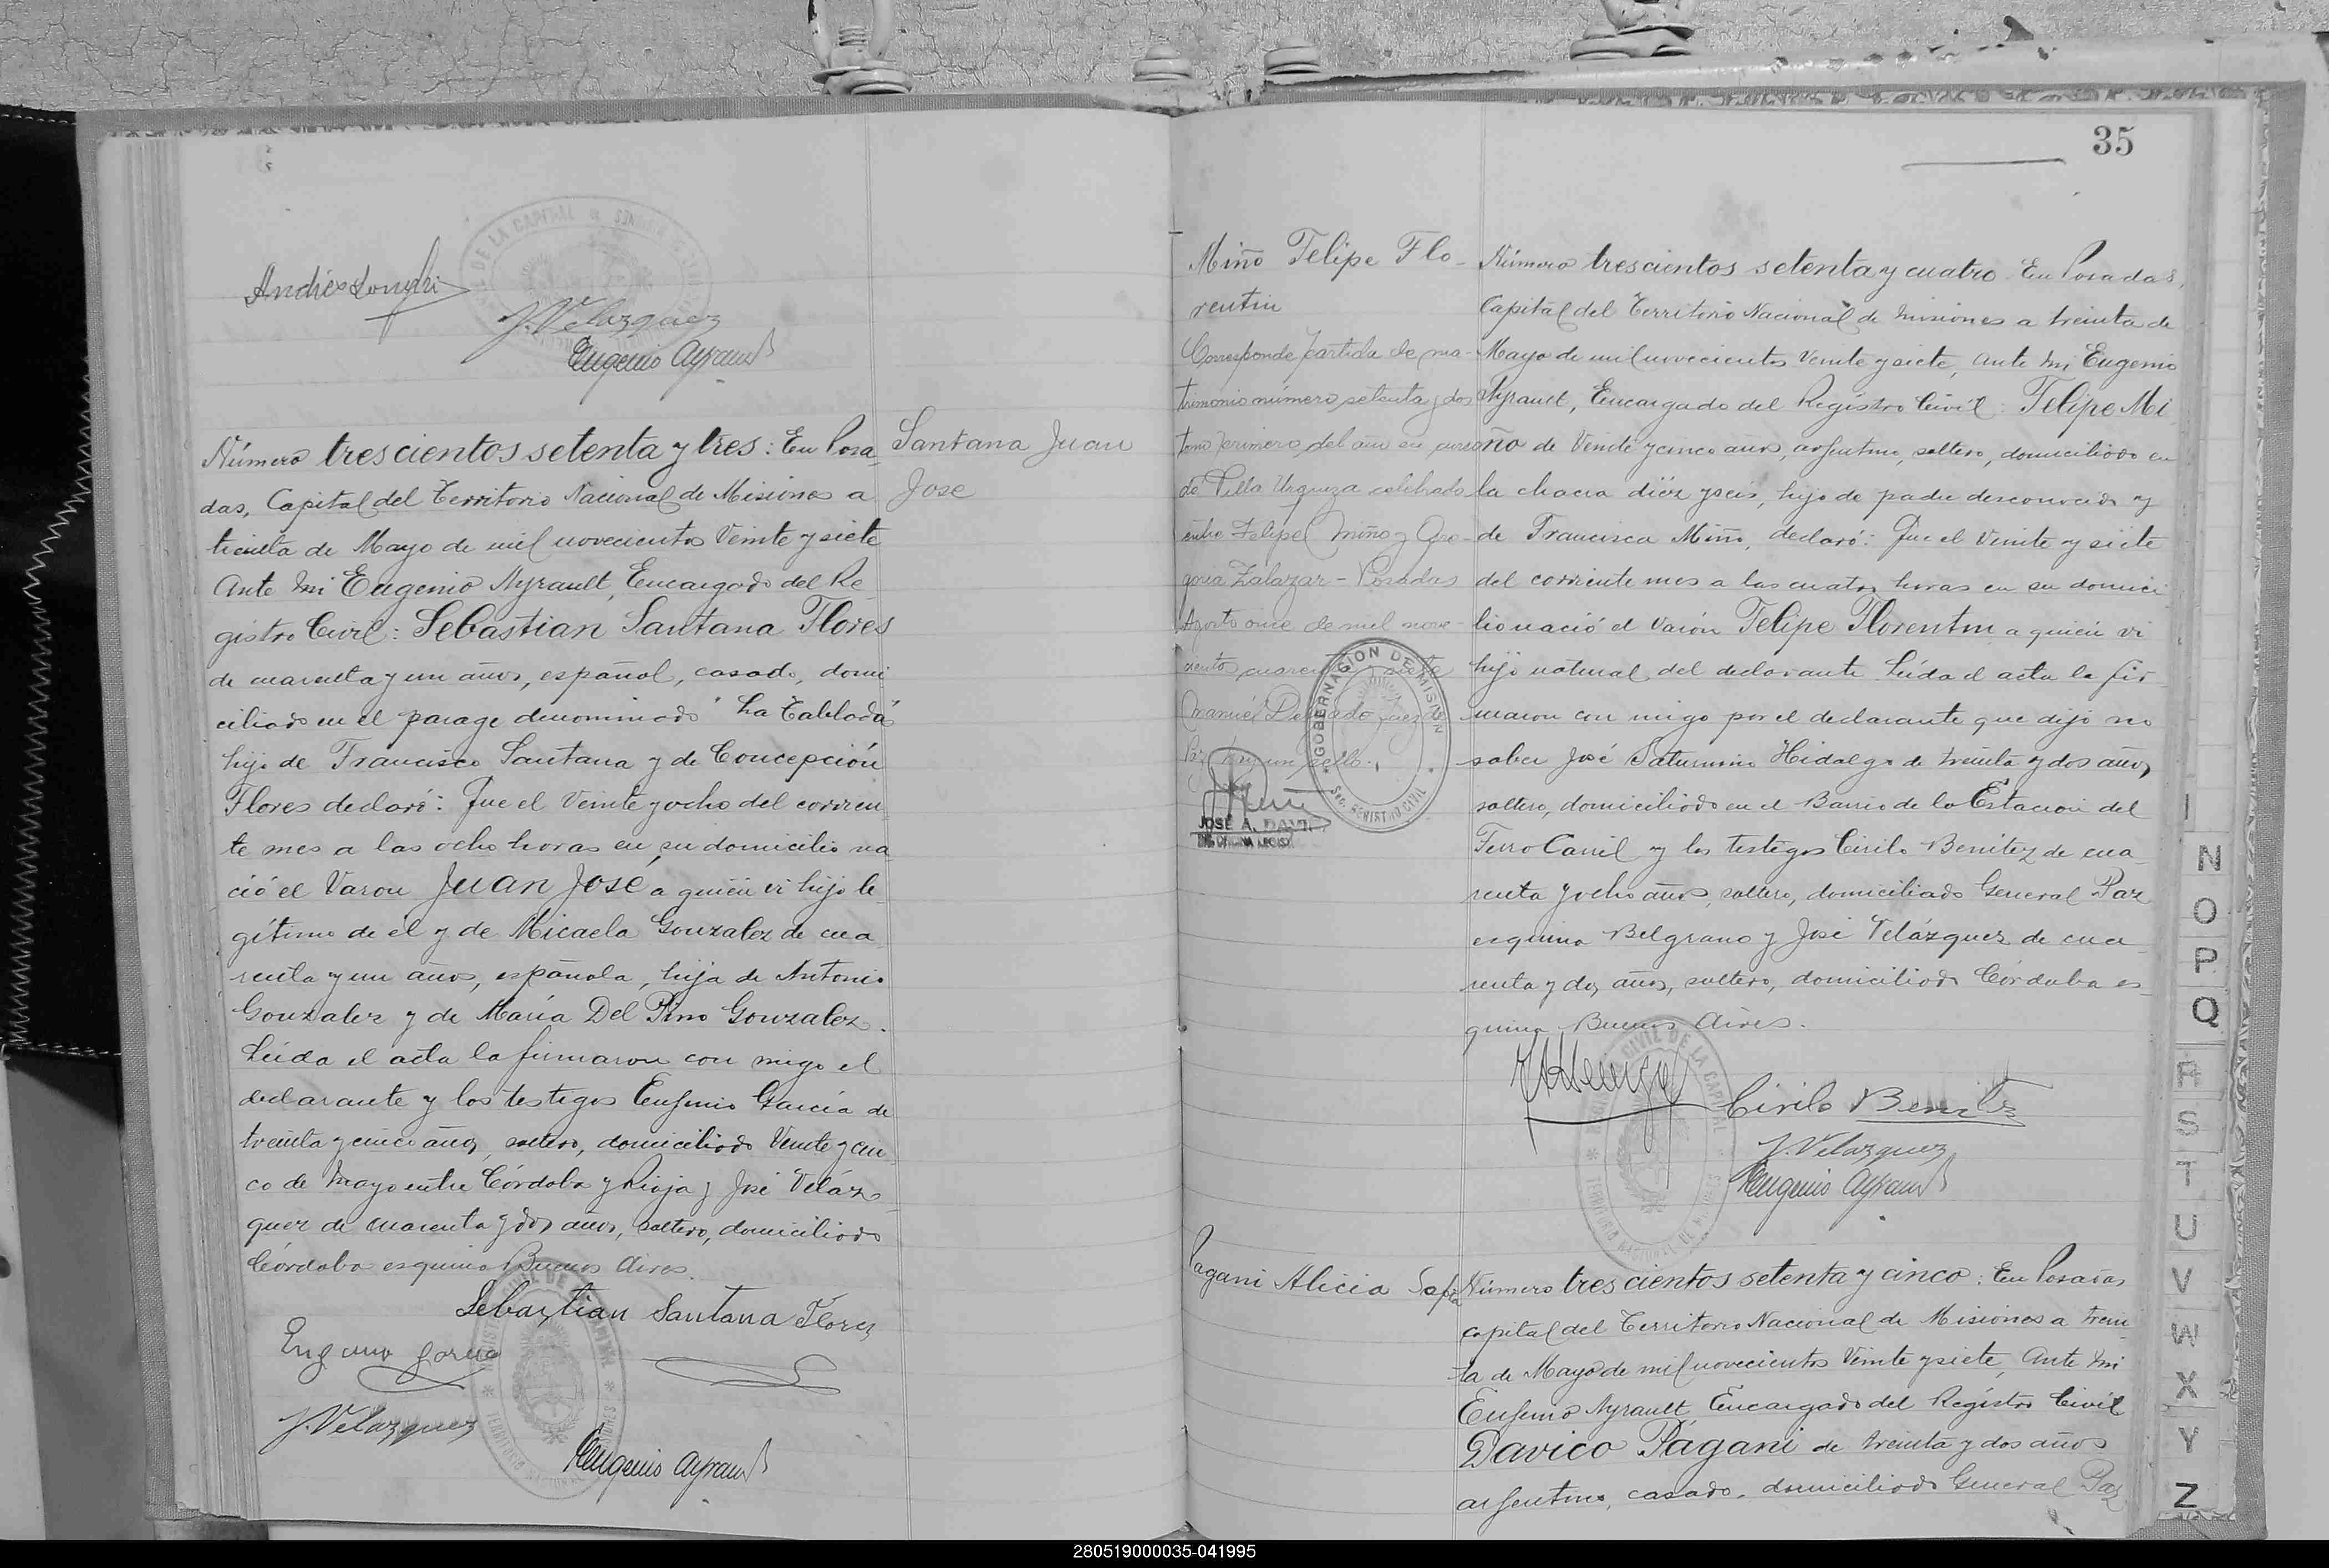 Andrés
J. Velazquez
Eugenio Ayrault
Santana Juan
José
Número trescientos setenta y tres: En Posa
das, Capital del Territorio Nacional de Misiones a
treinta de Mayo de mil novecientos Veinte y siete
Ante mi Eugenio Ayrault, Encargado del Re
gistro Civil: Sebastian Santana Flores
de cuarenta y un años, español, casado, domi
ciliado en el parage denominado "La Tablada"
hijo de Francisco Santana y de Concepción
Flores declaró: Que el Veinte y ocho del corrien
te mes a las ocho horas en su domicilio na
ció el Varon Juan José a quien vi hijo le
gítimo de él y de Micaela Gonzalez de cua
renta y un años, española, hija de Antonio
Gonzalez y de María Del Pino Gonzalez.
Leida el acta la firmaron con migo el
declarante y los testigos Eugenio García de
treinta y cinco años, soltero, domiciliado Veinte y cin
co de Mayo entre Córdoba y Rioja y José Veláz
quez de cuarenta y dos años, soltero, domiciliado
Córdoba esquina Buenos Aires.
Sebastian Santana Florez
Eugenio Garcia
J. Velazquez
Eugenio Ayrault
35
Miño Felipe Flo-
rentin
Corresponde partida de ma-
trimonio número setenta y dos
tomo primero del año en curso
de Villa Urquiza celebrado
entre Felipe Miño y Gre-
goria Zalazar - Posadas
Agosto once de mil nove-
cientos cuarenta y siete
Manuel Delgado juez de
Paz Hay un sello.
GOBERNACION DE MISIONES
SEC. REGISTRO CIVIL
JOSÉ A. DAVI
Número trescientos setenta y cuatro. En Posadas,
Capital del Territorio Nacional de Misiones a treinta de
Mayo de mil novecientos Veinte y siete, Ante mi Eugenio
Ayrault, Encargado del Registro Civil: Felipe Mi
ño de Veinte y cinco años, argentino, soltero, domiciliado en
la chacra diéz y seis, hijo de padre desconocido y
de Francisca Miño, declaró: Que el Veinte y siete
del corriente mes a las cuatro horas en su domici
lio nació el Varón Felipe Florentin a quien vi
hijo natural del declarante. Leída el acta la fir
maron con migo por el declarante que dijo no
saber José Saturnino Hidalgo de treinta y dos años,
soltero, domiciliado en el Barrio de la Estacion del
Ferro Carril y los testigos Cirilo Benitez de cua
renta y ocho años, soltero, domiciliado General Paz
esquina Belgrano y José Velázquez de cua
renta y dos años, soltero, domiciliado Córdoba es
quina Buenos Aires.
Cirilo Benitez
J. Velazquez
Eugenio Ayrault
Pagani Alicia Sofia
Número trescientos setenta y cinco: En Posadas
capital del Territorio Nacional de Misiones a trein
ta de Mayo de mil novecientos Veinte y siete, Ante mi
Eugenio Ayrault, Encargado del Registro Civil
Davico Pagani de treinta y dos años
argentino, casado, domiciliado General Paz
I
N
O
P
Q
R
S
T
U
V
W
X
Y
Z
280519000035-041995